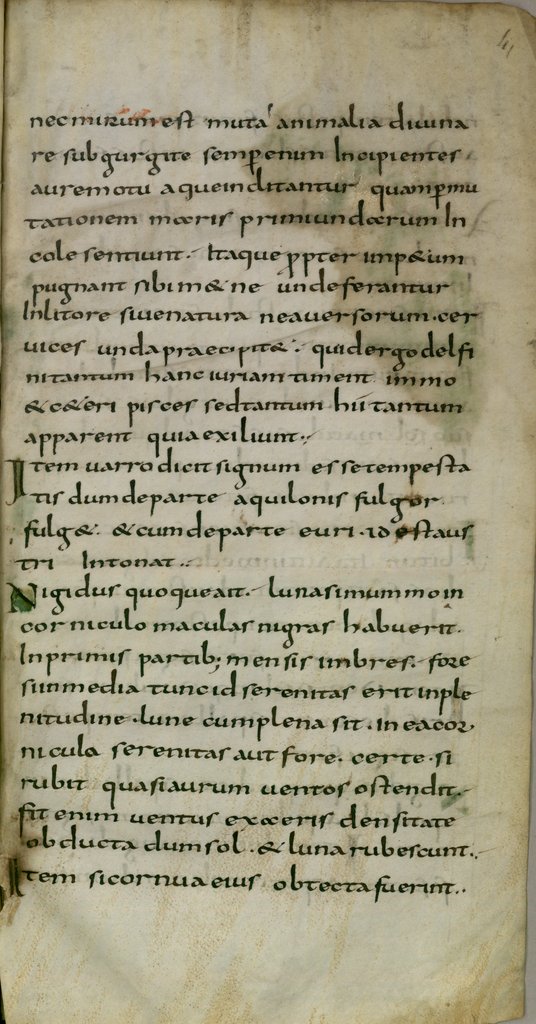 4
nec mirum est muta animalia divina
re sub gurgite semp̄ enim Incipientes
aure motu aque inditantur quam p̄mu
tationem maris primi undarum In
cole sentiunt. Itaque p̄pter imp&um
pugnant sibi m&ne unde ferantur
In litore sive natura ne aversorum. cer
vices unda praecipit&. quid ergo delfi
ni tantum hanc iuriam timent immo
& c&eri pisces sed tantum hii tantum
apparent quia exiliunt.
Item varro dicit signum esse tempesta
tis dum de parte aquilonis fulgor
fulg&. & cum de parte euri. id est aus
tri Intonat.
Nigidus quoque ait. luna si mummo in
corniculo maculas nigras habuerit.
In primis partib; mensis imbres. fore
si in media tunc id serenitas erit in ple
nitudine. lune cum plena sit. in ea cor
nicula serenitas aut fore. certe. si
rubit quasi aurum ventos ostendit.
fit enim ventus ex aeris densitate
obducta dum sol. & luna rubescunt.
Item si cornua eius obtecta fuerint.